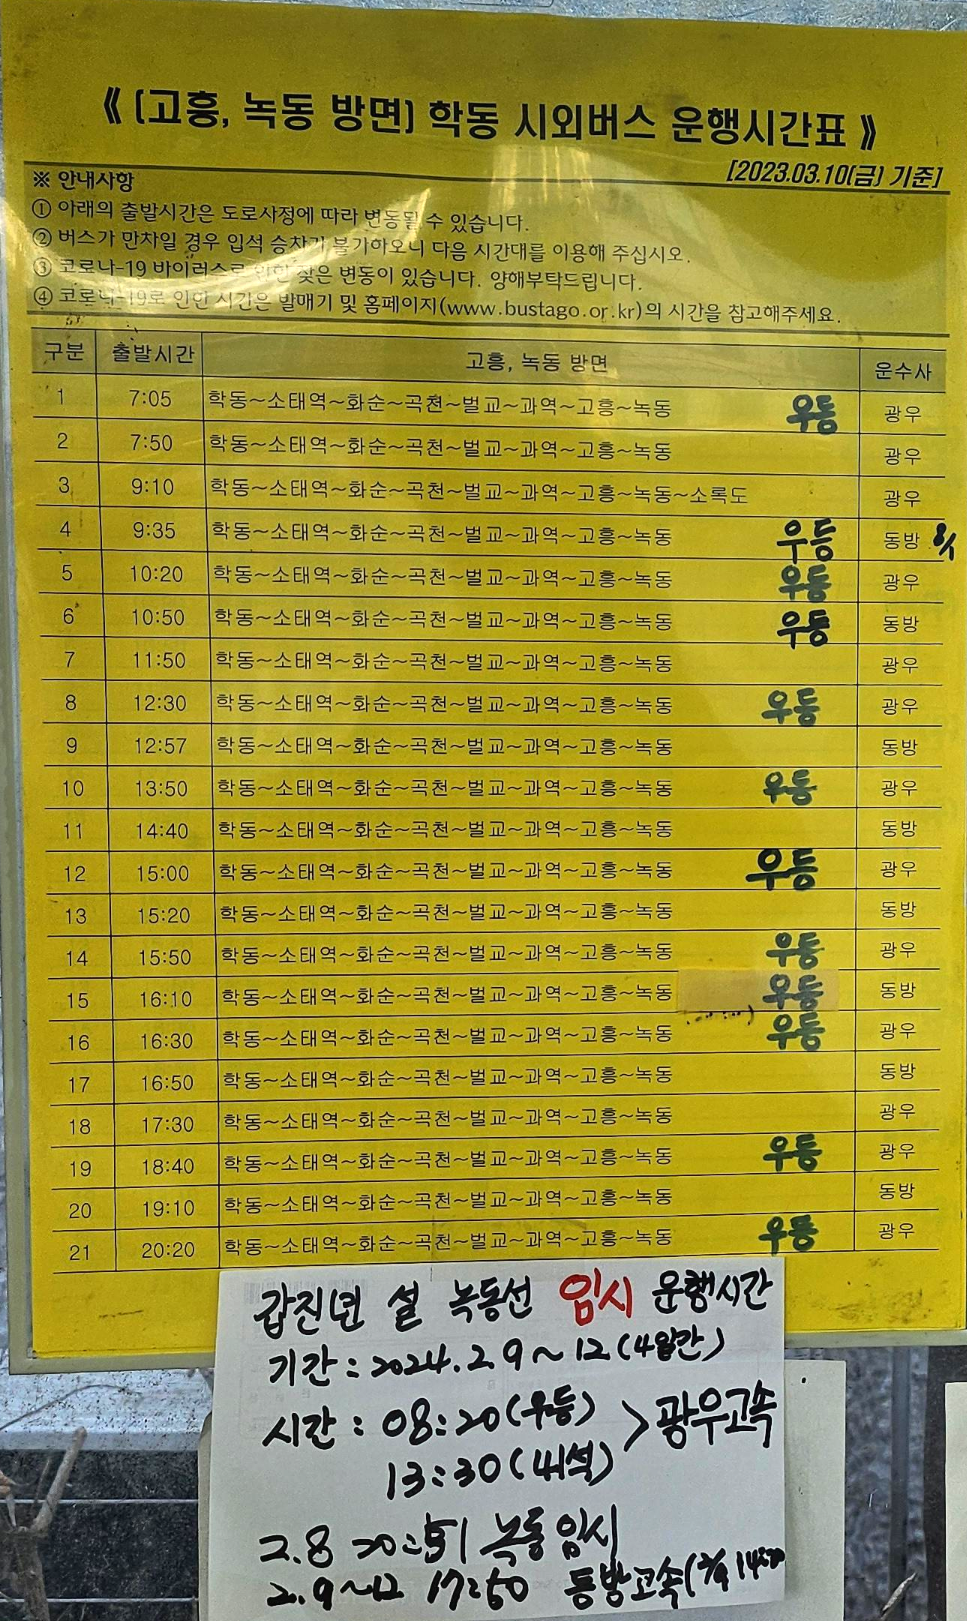 《 (고흥, 녹동 방면) 학동 시외버스 운행시간표 》
[2023.03.10(금) 기준]
※ 안내사항
① 아래의 출발시간은 도로사정에 따라 변동될 수 있습니다.
② 버스가 만차일 경우 입석 승차가 불가하오니 다음 시간대를 이용해 주십시오.
③ 코로나-19 바이러스로 인한 잦은 변동이 있습니다. 양해부탁드립니다.
④ 코로나-19로 인한 시간은 발매기 및 홈페이지(www.bustago.or.kr)의 시간을 참고해주세요.
구분 출발시간 고흥, 녹동 방면 운수사
1 7:05 학동~소태역~화순~곡천~벌교~과역~고흥~녹동 우등 광우
2 7:50 학동~소태역~화순~곡천~벌교~과역~고흥~녹동 광우
3 9:10 학동~소태역~화순~곡천~벌교~과역~고흥~녹동~소록도 광우
4 9:35 학동~소태역~화순~곡천~벌교~과역~고흥~녹동 우등 동방
5 10:20 학동~소태역~화순~곡천~벌교~과역~고흥~녹동 우등 광우
6 10:50 학동~소태역~화순~곡천~벌교~과역~고흥~녹동 우등 동방
7 11:50 학동~소태역~화순~곡천~벌교~과역~고흥~녹동 광우
8 12:30 학동~소태역~화순~곡천~벌교~과역~고흥~녹동 우등 광우
9 12:57 학동~소태역~화순~곡천~벌교~과역~고흥~녹동 동방
10 13:50 학동~소태역~화순~곡천~벌교~과역~고흥~녹동 우등 광우
11 14:40 학동~소태역~화순~곡천~벌교~과역~고흥~녹동 동방
12 15:00 학동~소태역~화순~곡천~벌교~과역~고흥~녹동 우등 광우
13 15:20 학동~소태역~화순~곡천~벌교~과역~고흥~녹동 동방
14 15:50 학동~소태역~화순~곡천~벌교~과역~고흥~녹동 우등 광우
15 16:10 학동~소태역~화순~곡천~벌교~과역~고흥~녹동 우등 동방
16 16:30 학동~소태역~화순~곡천~벌교~과역~고흥~녹동 우등 광우
17 16:50 학동~소태역~화순~곡천~벌교~과역~고흥~녹동 동방
18 17:30 학동~소태역~화순~곡천~벌교~과역~고흥~녹동 광우
19 18:40 학동~소태역~화순~곡천~벌교~과역~고흥~녹동 우등 광우
20 19:10 학동~소태역~화순~곡천~벌교~과역~고흥~녹동 동방
21 20:20 학동~소태역~화순~곡천~벌교~과역~고흥~녹동 우등 광우
갑진년 설 녹동선 임시 운행시간
기간 : 2024.2.9~12(4일간)
시간 : 08:20(우등) > 광우고속
13:30(45석)
2.8 20:51 녹동임시
2.9~12 17:50 동방고속